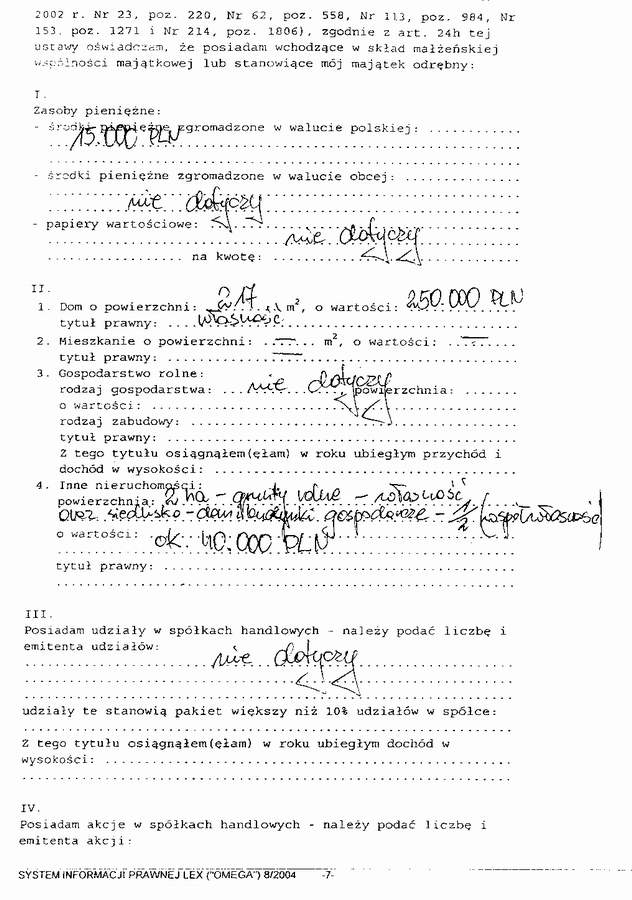 2002 r. Nr 23, poz. 220, Nr 62, poz. 558, Nr 113, poz. 984, Nr
153, poz. 1271 i Nr 214, poz. 1806), zgodnie z art. 24h tej
ustawy oświadczam, że posiadam wchodzące w skład małżeńskiej
wspólności majątkowej lub stanowiące mój majątek odrębny:
I.
Zasoby pieniężne:
- środki pieniężne zgromadzone w walucie polskiej: ............
15.000 PLN
- środki pieniężne zgromadzone w walucie obcej: ...............
nie dotyczy
- papiery wartościowe:
nie dotyczy
.................. na kwotę: ...............
II.
1. Dom o powierzchni: 217 m², o wartości: 250.000 PLN
tytuł prawny: .... własność
2. Mieszkanie o powierzchni: — m², o wartości: —
tytuł prawny: —
3. Gospodarstwo rolne:
rodzaj gospodarstwa: ... nie dotyczy powierzchnia: .......
o wartości: ...............
rodzaj zabudowy: ...............
tytuł prawny: ...............
Z tego tytułu osiągnąłem(ęłam) w roku ubiegłym przychód i
dochód w wysokości: ...............
4. Inne nieruchomości:
powierzchnia: 2 ha - grunty rolne - własność
oraz siedlisko - dom i budynki gospodarcze - 1/2 (współwłasność)
o wartości: ok. 40.000 PLN
tytuł prawny: ...............
III.
Posiadam udziały w spółkach handlowych - należy podać liczbę i
emitenta udziałów:
nie dotyczy
udziały te stanowią pakiet większy niż 10% udziałów w spółce:
Z tego tytułu osiągnąłem(ęłam) w roku ubiegłym dochód w
wysokości: ...............
IV.
Posiadam akcje w spółkach handlowych - należy podać liczbę i
emitenta akcji:
SYSTEM INFORMACJI PRAWNEJ LEX ("OMEGA") 8/2004 -7-